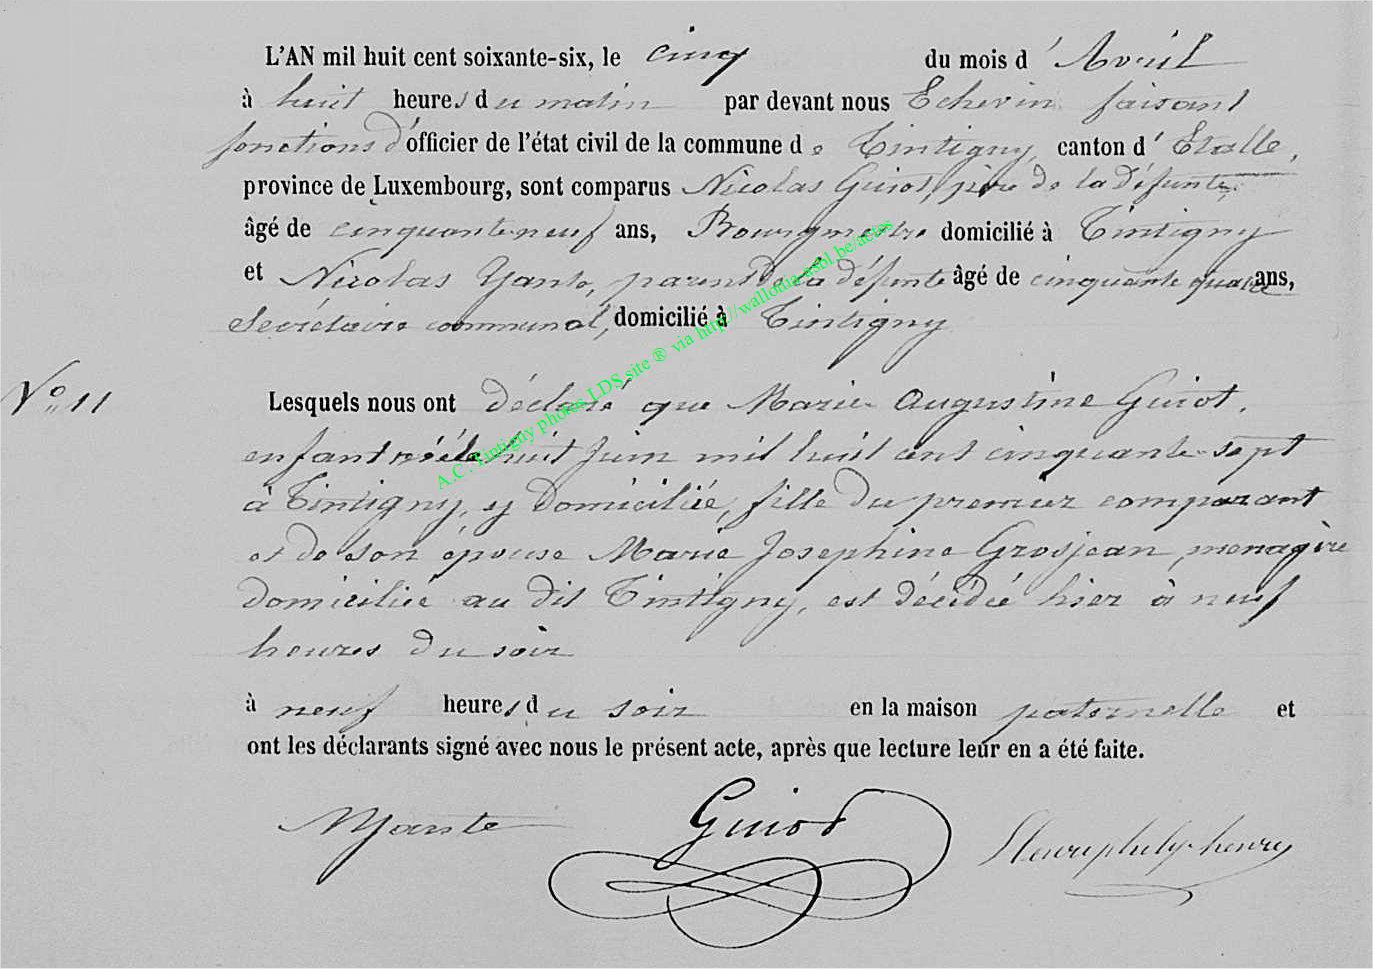 L'AN mil huit cent soixante-six, le cinq du mois d'Avril
à huit heures du matin par devant nous Echevin faisant
fonctions d'officier de l'état civil de la commune de Tintigny, canton d'Etalle,
province de Luxembourg, sont comparus Nicolas Guiot, père de la défunte,
âgé de cinquante-neuf ans, Bourgmestre domicilié à Tintigny
et Nicolas Yante, parent de la défunte âgé de cinquante quatre ans,
Secrétaire communal, domicilié à Tintigny
N° 11
Lesquels nous ont déclaré que Marie Augustine Guiot,
enfant née le huit Juin mil huit cent cinquante-sept
à Tintigny, y domiciliée, fille du premier comparant
et de son épouse Marie Josephine Grosjean, menagère
domiciliée au dit Tintigny, est décédée hier à neuf
heures du soir
à neuf heures du soir en la maison paternelle et
ont les déclarants signé avec nous le présent acte, après que lecture leur en a été faite.
NYante Guiot henry
A.C. Tintigny photos LDS site ® via http://wallonia-asbl.be/actes